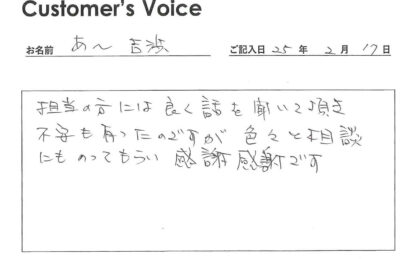 Customer's Voice
お名前 あべ 吉渉 ご記入日 25 年 2 月 17 日
担当の方には良く話を聞いて頂き
不安も有ったのですが 色々と相談
にものってもらい 感謝感謝です